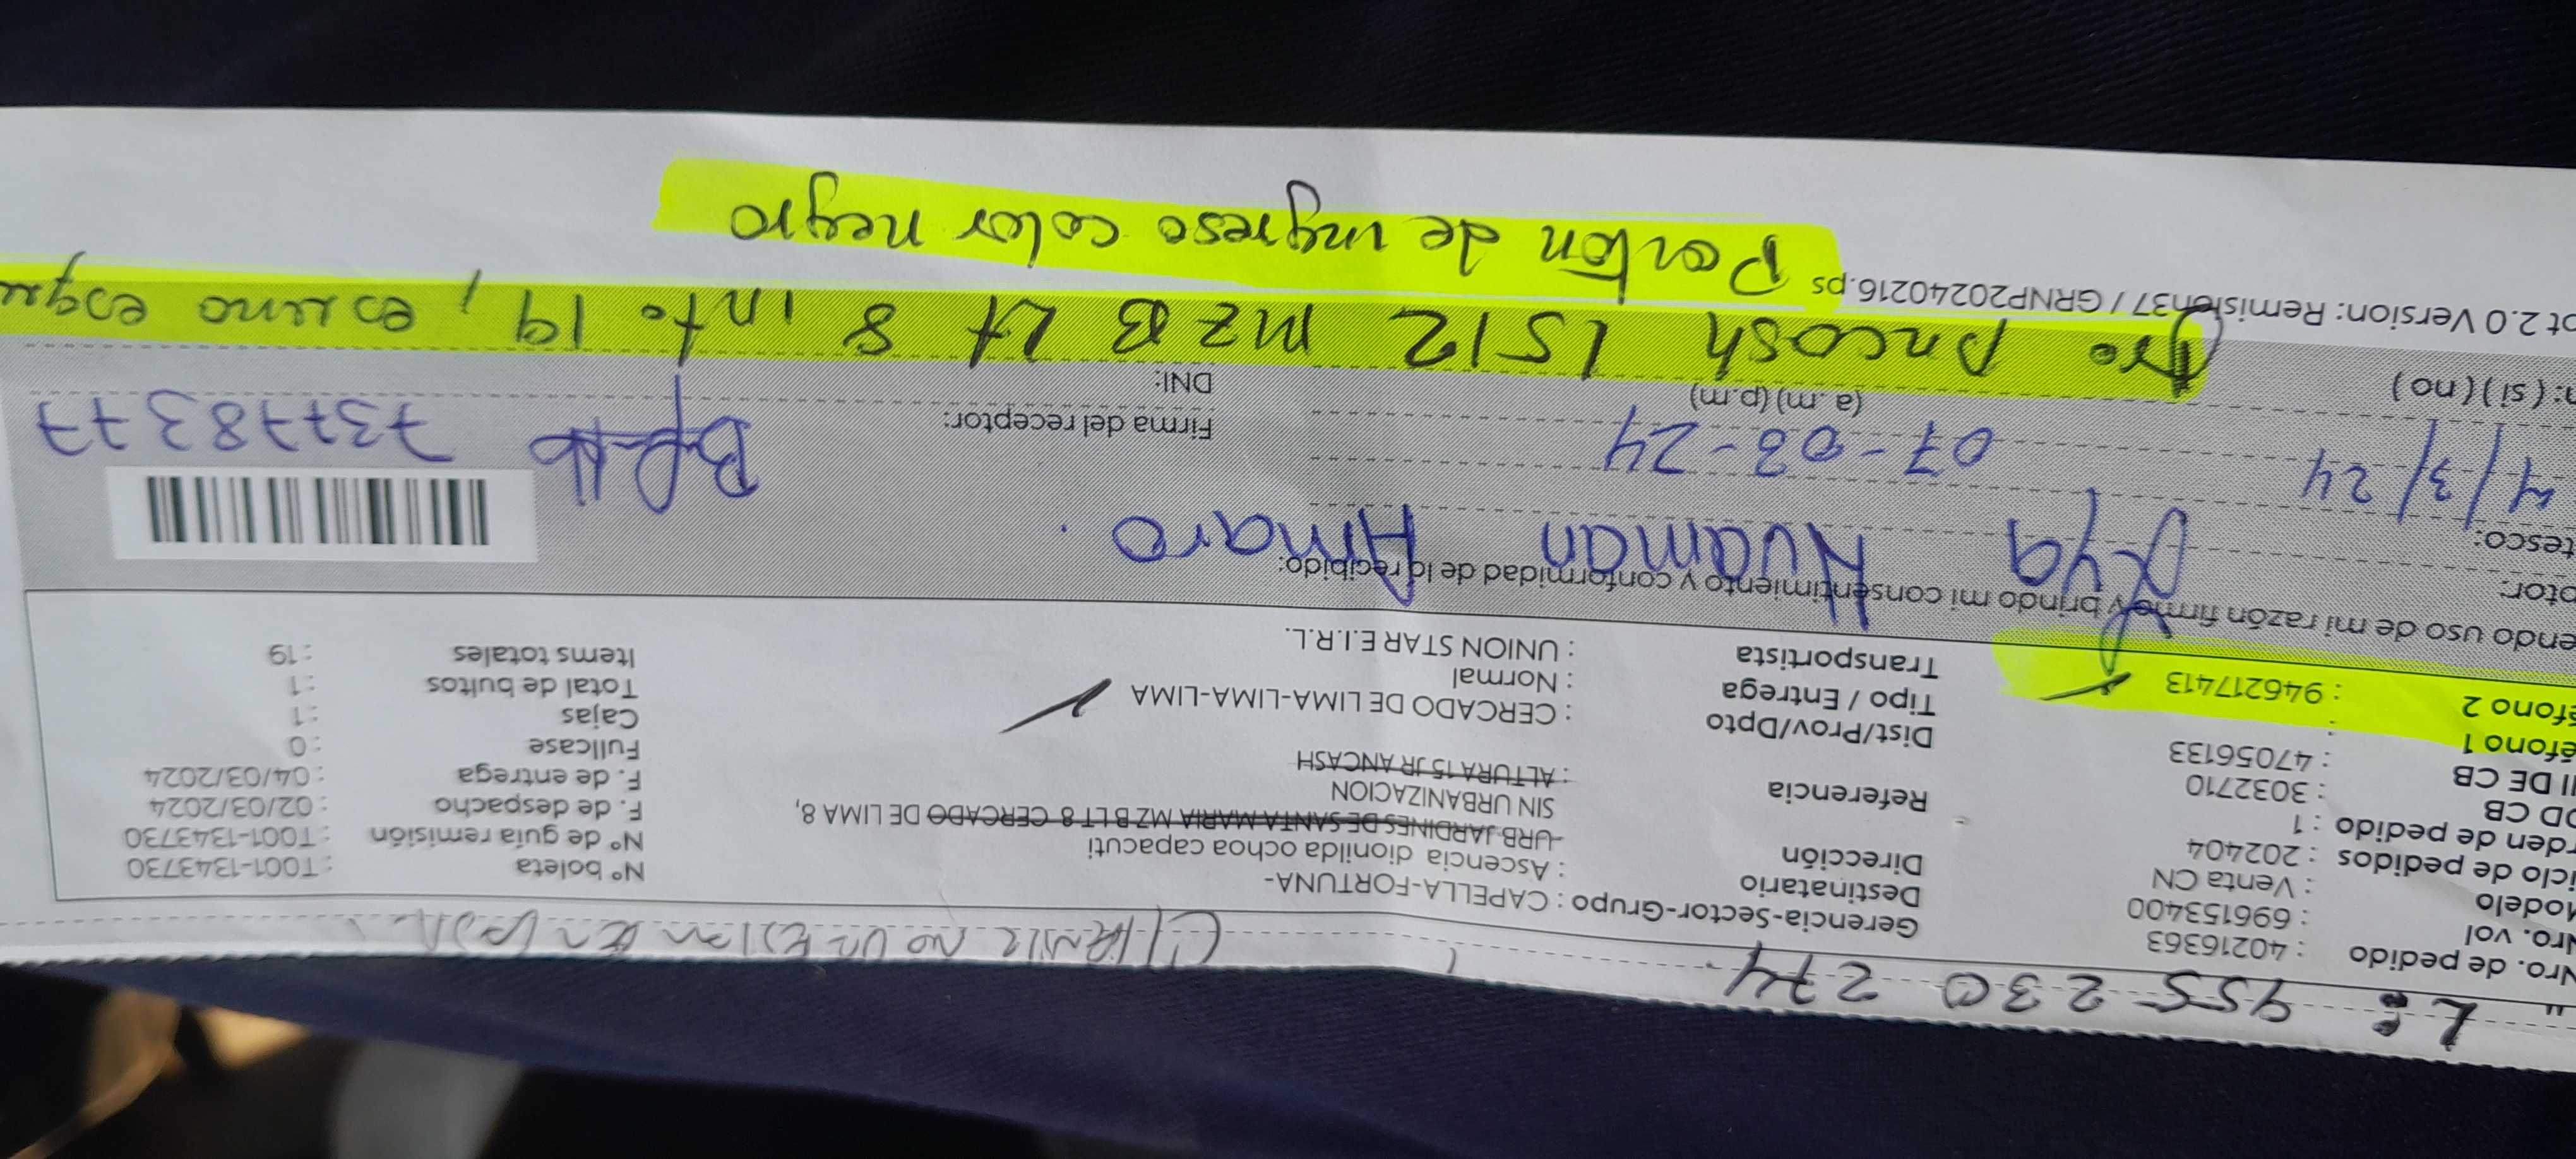 L: 955 230 274
Nro. de pedido : 40216363
Nro. vol : 696153400
Modelo : Venta CN
iclo de pedidos : 202404
rden de pedido : 1
OD CB : 3032710
II DE CB : 47056133
éfono 1 :
éfono 2 : 946217413
Gerencia-Sector-Grupo : CAPELLA-FORTUNA-
Destinatario : Ascencia dionilda ochoa capacuti
Dirección : URB. JARDINES DE SANTA MARIA MZ B LT 8 CERCADO DE LIMA 8,
SIN URBANIZACION
Referencia : ALTURA 15 JR ANCASH
Dist/Prov/Dpto : CERCADO DE LIMA-LIMA-LIMA
Tipo / Entrega : Normal
Transportista : UNION STAR E.I.R.L.
N° boleta : T001-1343730
N° de guía remisión : T001-1343730
F. de despacho : 02/03/2024
F. de entrega : 04/03/2024
Fullcase : 0
Cajas : 1
Total de bultos : 1
Items totales : 19
endo uso de mi razón firmo y brindo mi consentimiento y conformidad de lo recibido:
ptor:
Huaman Amaro.
tesco:
4/3/24
07-03-24
(a.m) (p.m)
Firma del receptor:
DNI:
73778377
n: ( si ) ( no )
Jro Ancosh 1512 MZ B Lt 8 int. 19, es uno esqu
pt 2.0 Version: Remision37 / GRNP20240216.ps
Portón de ingreso color negro